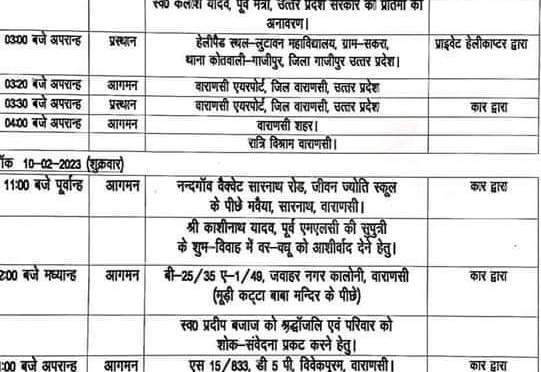 स्व० कैलाश यादव, पूर्व मंत्री, उत्तर प्रदेश सरकार की प्रतिमा का
अनावरण।
03:00 बजे अपरान्ह प्रस्थान हेलीपैड स्थल-लुटावन महाविद्यालय, ग्राम-सकरा, प्राइवेट हेलीकाप्टर द्वारा
थाना कोतवाली-गाजीपुर, जिला गाजीपुर उत्तर प्रदेश।
03:20 बजे अपरान्ह आगमन वाराणसी एयरपोर्ट, जिल वाराणसी, उत्तर प्रदेश
03:30 बजे अपरान्ह प्रस्थान वाराणसी एयरपोर्ट, जिल वाराणसी, उत्तर प्रदेश कार द्वारा
04:00 बजे अपरान्ह आगमन वाराणसी शहर।
रात्रि विश्राम वाराणसी।
10-02-2023 (शुक्रवार)
11:00 बजे पूर्वान्ह आगमन नन्दगॉव वैक्वेट सारनाथ रोड, जीवन ज्योति स्कूल कार द्वारा
के पीछे मवैया, सारनाथ, वाराणसी।
श्री काशीनाथ यादव, पूर्व एमएलसी की सुपुत्री
के शुभ-विवाह में वर-वधू को आशीर्वाद देने हेतु।
2:00 बजे मध्यान्ह आगमन बी-25/35 ए-1/49, जवाहर नगर कालोनी, वाराणसी कार द्वारा
(मूड़ी कट्टा बाबा मन्दिर के पीछे)
स्व० प्रदीप बजाज को श्रद्धॉजलि एवं परिवार को
शोक-संवेदना प्रकट करने हेतु।
:00 बजे अपरान्ह आगमन एस 15/833, डी 5 पी, विवेकपुरम, वाराणसी। कार द्वारा